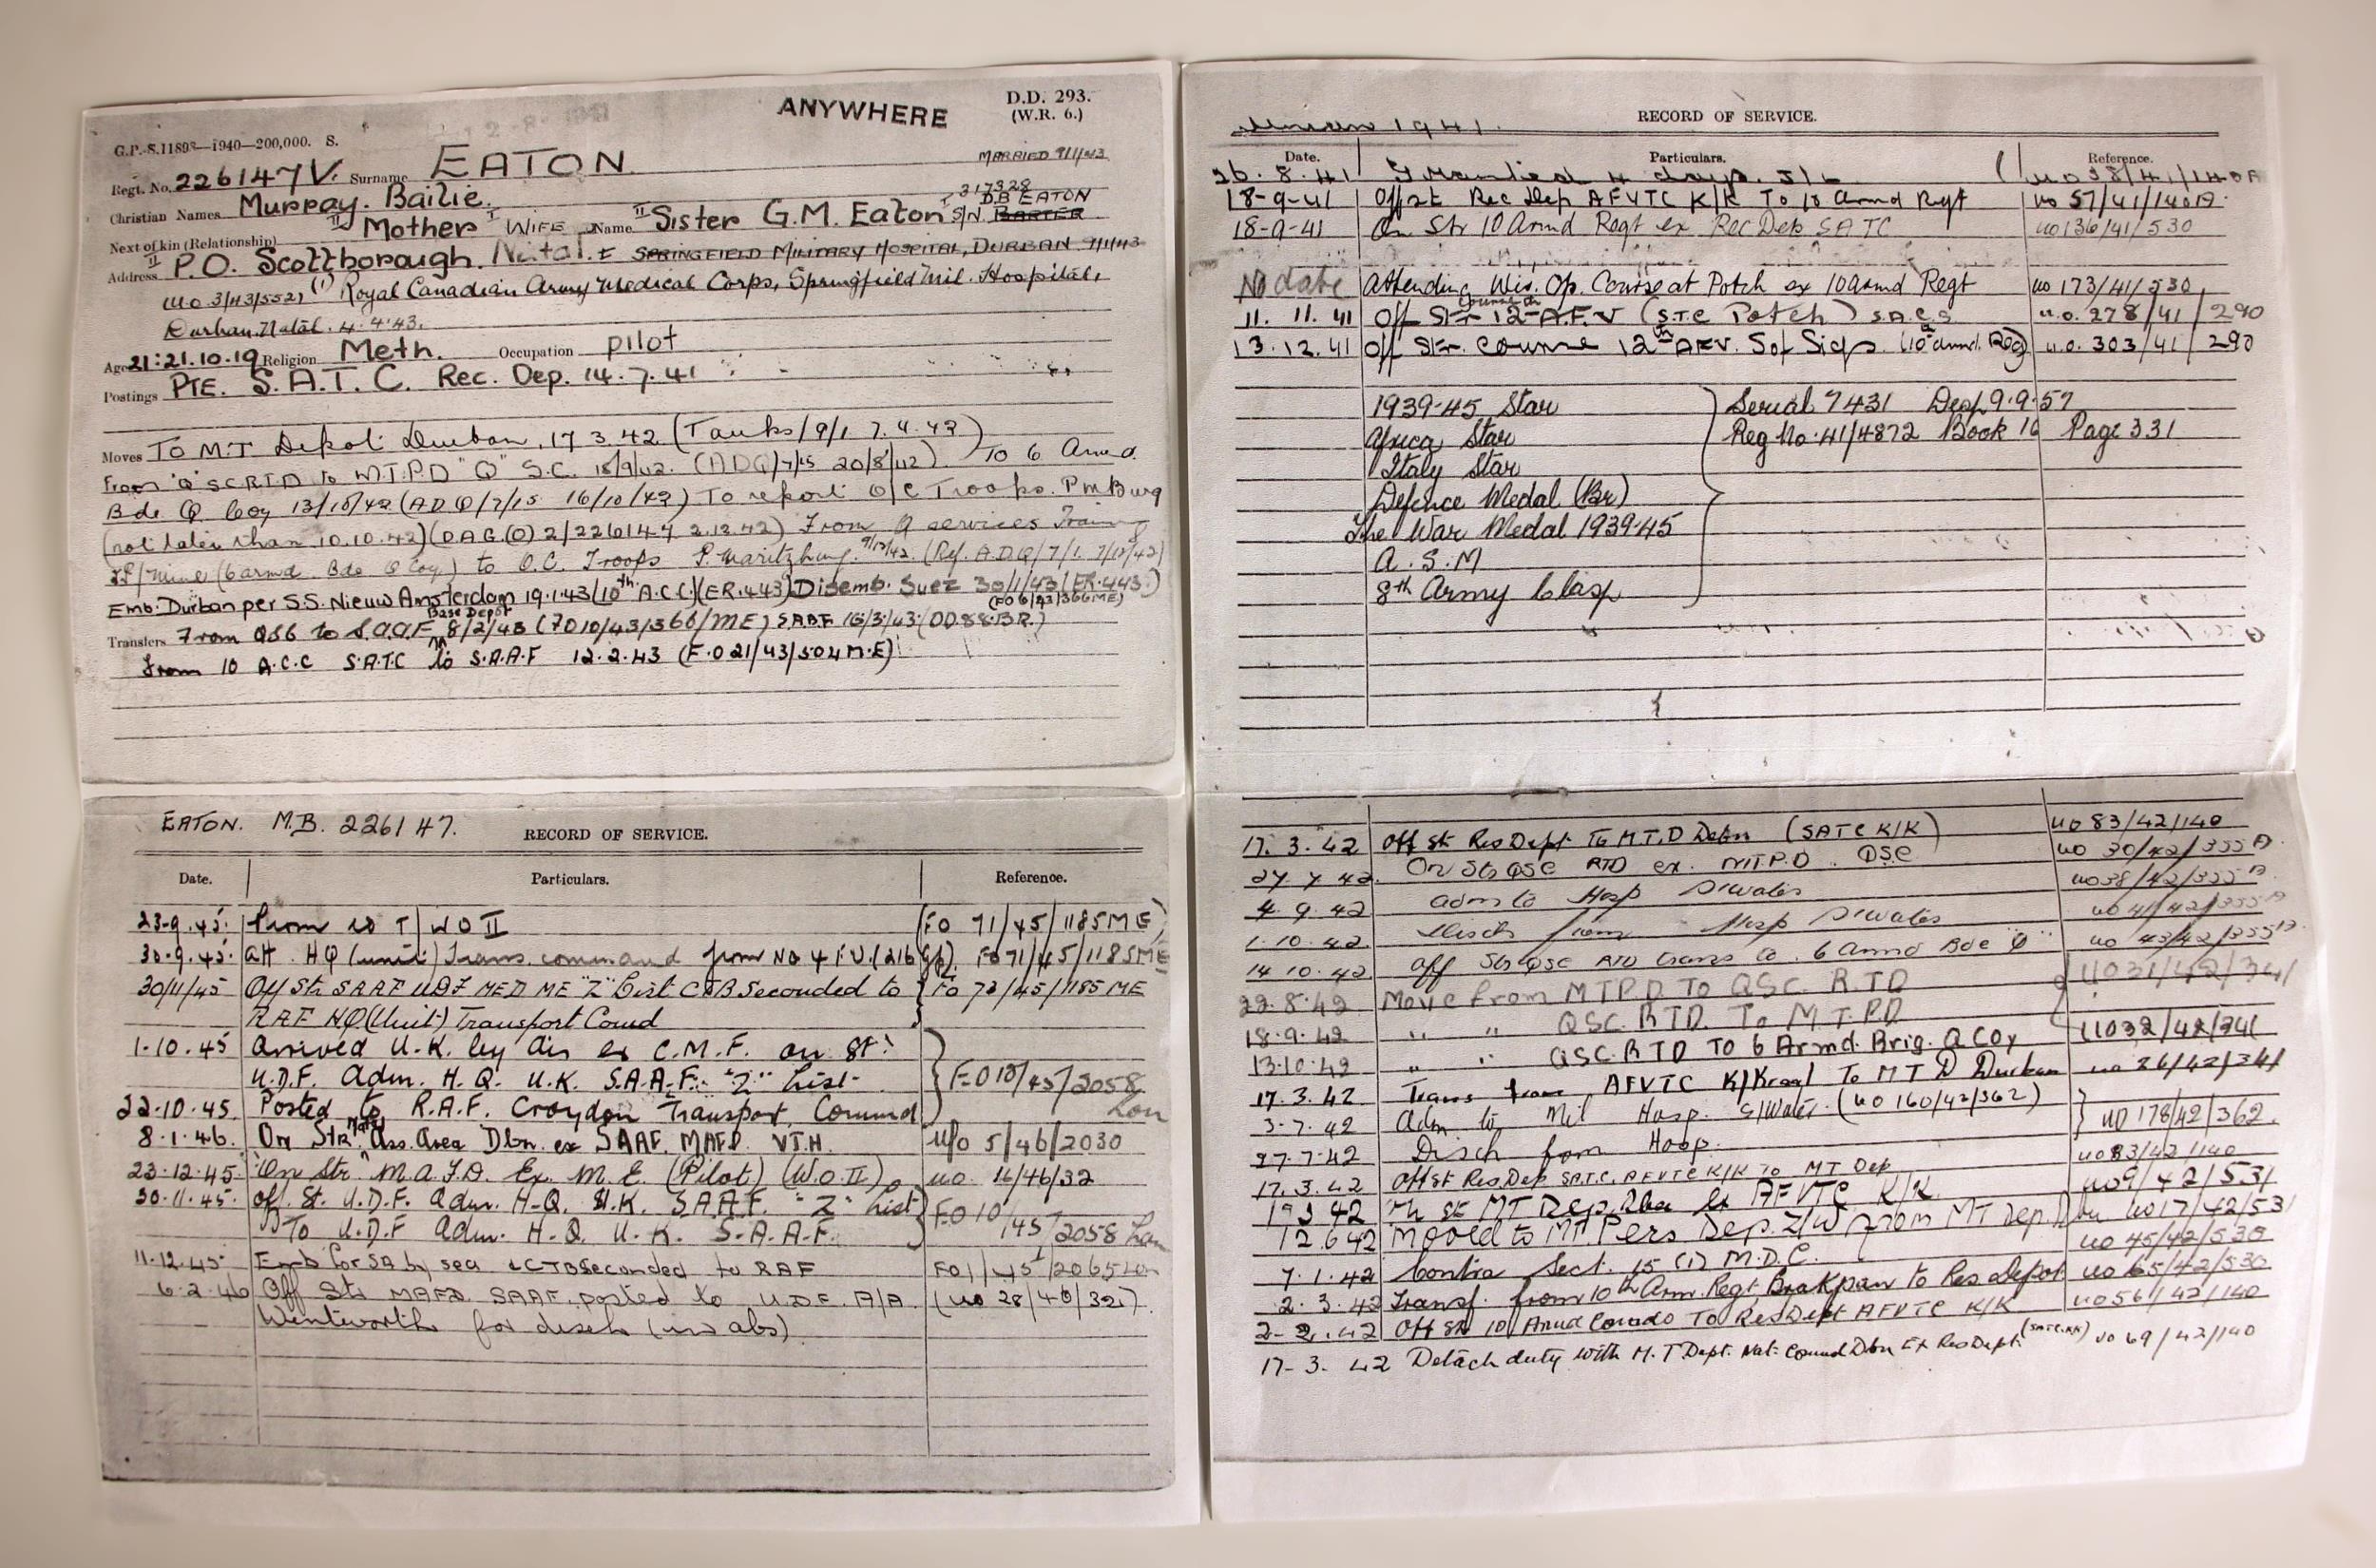 ANYWHERE
D.D. 293.
(W.R. 6.)
G.P.-S.11893—1940—200,000. S.
MARRIED 9/1/43
Regt. No. 226147V. Surname EATON
Christian Names Murray. Bailie.
317328
Next of kin (Relationship) II Mother I WIFE Name II Sister G.M. Eaton I S/N BARTER D.B EATON
Address II P.O. Scottborough. Natal. I SPRINGFIELD MILITARY HOSPITAL, DURBAN 9/1/43
(uo 3/43/552) (I) Royal Canadian Army Medical Corps, Springfield Mil. Hospital,
Durban. Natal. 4.4.43.
Age 21: 21.10.19 Religion Meth. Occupation pilot
Postings PTE. S.A.T.C. Rec. Dep. 14.7.41
Moves To M.T Depot Durban, 17.3.42 (Tanks/9/1 7.4.42)
From "Q" SCRTD to M.T.P.D "Q" S.C. 18/9/42. (ADQ/7/15 20/8/42) To 6 Armd.
Bde Q Coy 13/10/42 (ADQ/7/15 16/10/42) To report O/C Troops. PMBurg
(not later than 10.10.42) (DAG(O) 2/226147 2.12.42) From Q services Training
(6 armd. Bde Q Coy) to O.C. Troops P. Maritzburg. 9/12/42. (Ref. A.D.Q/7/1. 7/12/42)
Emb. Durban per S.S. Nieuw Amsterdam 19.1.43 (10th A.C.C.) (ER.443) Disemb. Suez 30/1/43 (ER.443)
Transfers From QSC to S.A.A.F Base Depot 8/2/43 (FO10/43/366/ME) SAAF 16/3/43 (DD88.BR.) (FO 6/43/366ME)
From 10 A.C.C S.A.T.C to S.A.A.F 12.2.43 (F.O 21/43/504 M.E)
1941.
RECORD OF SERVICE.
Date. Particulars. Reference.
26.8.41 4 days
18-9-41 Off St Rec Dep AFVTC K/K To 10 Armd Rgt uo 57/41/140A.
18-9-41 On Str 10 Armd Regt ex Rec Dep SATC uo 136/41/530
No date Attending Wir. Op. Course at Potch ex 10 Armd Regt uo 173/41/530
11.11.41 Off Str 12th A.F.V Course (S.T.C Potch) S.A.C.S u.o. 278/41/290
13.12.41 Off Str. Course 12th AFV. S of Sigs. (10th armd. Reg) u.o. 303/41/290
1939-45 Star Serial 7431 Desp 9.9.57
Africa Star Reg No. 41/4872 Book 16 Page 331
Italy Star
Defence Medal (Br)
The War Medal 1939-45
A.S.M
8th Army Clasp
EATON. M.B. 226147.
RECORD OF SERVICE.
Date. Particulars. Reference.
23-9-45. Prom to T/WO II (FO 71/45/1185ME)
30-9-45. att. HQ (unit) Trans. command from No 4 F.U. (216 Gp) FO 71/45/1185ME
30/11/45 Off Str SAAF UDF MED ME "Z" List CTB Seconded to FO 72/45/1185 ME
RAF HQ (Unit) Transport Comd
1-10.45 Arrived U.K. by air ex C.M.F. on St:
U.D.F. Adm. H.Q. U.K. S.A.A.F. "Z" List FO 10/45/2058
22-10-45 Posted to R.A.F. Croydon Transport Commd Lon
8.1.46. On Str. Ass. Area Dbn. ex SAAF. MAFD. VTH. u/o 5/46/2030
23-12-45 On Str. M.A.F.D. Ex. M.E. (Pilot) (W.O.II) uo 16/46/32
30.11.45. off. St. U.D.F. Adm. H-Q. U.K. S.A.A.F. "Z" List FO 10
To U.D.F Adm. H.Q. U.K. S.A.A.F. /45/2058 Lon
11.12.45 Emb for SA by sea & CTB Seconded to RAF FO1/45/2065 Lon
6.2.46 Off Str MAFD SAAF, posted to U.D.F. A/A (uo 28/46/32)
Wentworth for disch (in abs)
17.3.42 Off St Res Dept To M.T.D Dbn (SATC K/K) uo 83/42/140
27.7.42. On Str QSC RTD ex. MTPD. QSC uo 30/42/355A.
4.9.42 adm to Hosp S'Water uo 38/42/355A
1.10.42. Disch from Hosp S'Water uo 41/42/355A
14.10.42 Off Str QSC RTD trans to 6 Armd Bde "Q" uo 43/42/355A
22.8.42 Move from MTPD To QSC. R.T.D uo 31/42/341
18.9.42 " " QSC. RTD. To M.T.P.D
13.10.42 " " QSC. RTD To 6 Armd. Brig. Q Coy uo 32/42/341
17.3.42 Trans from AFVTC K/Kraal To M T D Durban uo 26/42/341
3-7.42 Adm to Mil Hosp. S/Water. (uo 160/42/362)
27.7.42 Disch from Hosp. uo 178/42/362.
17.3.42 Off St Res Dep SATC. AFVTC K/K to MT Dep uo 83/42/140
19.3.42 On St MT Dep. Dbn ex AFVTC K/K. uo 9/42/531
12.6.42 Moved to MT. Pers Dep. Z/W from MT Dep. Dbn uo 17/42/531
7.1.42 Contra Sect. 15 (1) M.D.C. uo 45/42/530
2.3.42 Transf. from 10th Arm. Regt. Brakpan to Res Depot uo 65/42/530
2-2.42 Off St 10 Armd Comdo To Res Dept AFVTC K/K uo 56/42/140
17-3.42 Detach duty with M.T Dept. Nat: Command Dbn Ex Res Dept. (SATC.KK) uo 69/42/140